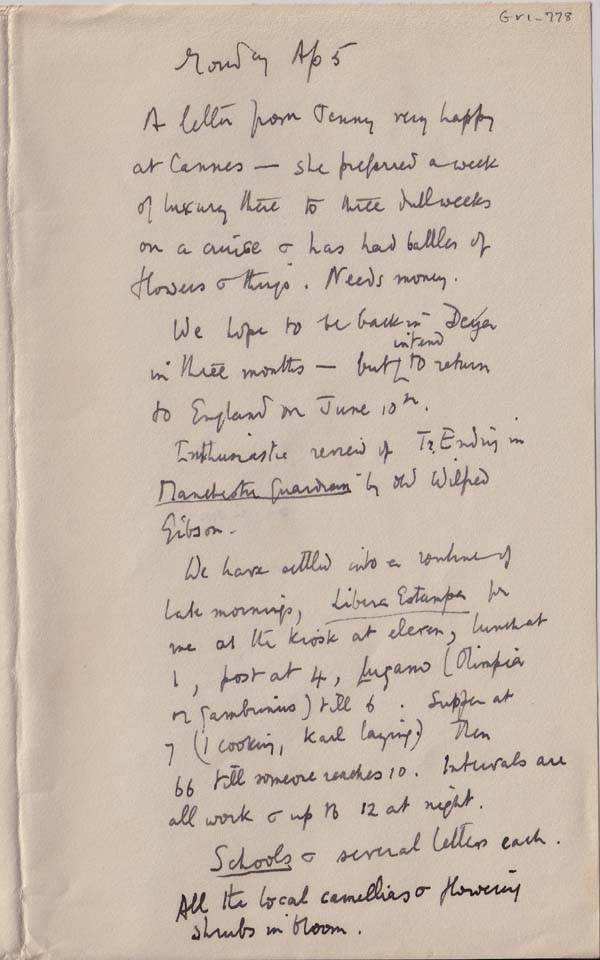 Gri-778
Monday Ap 5
A letter from Jenny very happy
at Cannes — she preferred a week
of luxury there to three dull weeks
on a cruise & has had battles of
flowers & things. Needs money.
We hope to be back in Deya
in three months — but intend to return
to England on June 10th.
Enthusiastic review of Tr. Ending in
Manchester Guardian by old Wilfred
Gibson.
We have settled into a routine of
late mornings, Libera Estampa for
me at the kiosk at eleven, lunch at
1, post at 4, Lugano (Olimpia
or Gambrinus) till 6. Supper at
7 (I cooking, Karl laying) Then
66 till someone reaches 10. Intervals are
all work & up to 12 at night.
Schools & several letters each.
All the local camellias & flowering
shrubs in bloom.